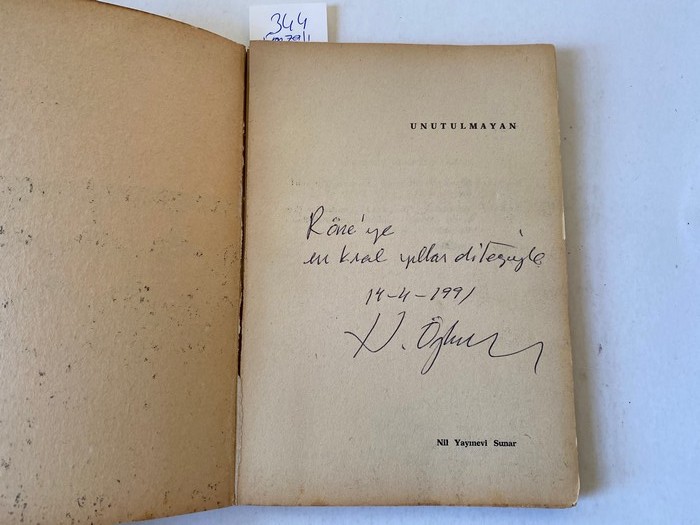 344
imzalı
UNUTULMAYAN
Röne'ye
en kral yıllar dileğiyle
14-4-1991
N. Özkan
Nil Yayınevi Sunar